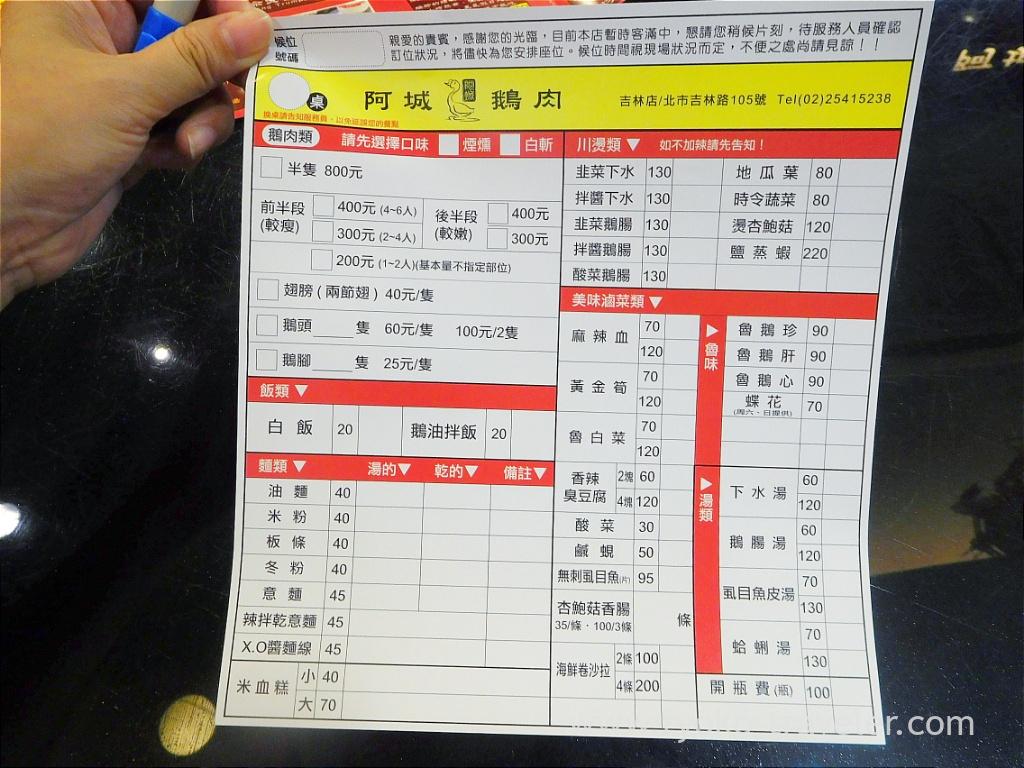 候位
號碼
親愛的貴賓，感謝您的光臨，目前本店暫時客滿中，懇請您稍候片刻，待服務人員確認
訂位狀況，將儘快為您安排座位。候位時間視現場狀況而定，不便之處尚請見諒！！
桌
阿城 鵝肉
吉林店/北市吉林路105號 Tel(02)25415238
換桌請告知服務員，以免延誤您的餐點
鵝肉類 請先選擇口味 煙燻 白斬
半隻 800元
前半段
(較瘦)
400元 (4~6人)
300元 (2~4人)
後半段
(較嫩)
400元
300元
200元 (1~2人)(基本量不指定部位)
翅膀(兩節翅) 40元/隻
鵝頭____隻 60元/隻 100元/2隻
鵝腳____隻 25元/隻
飯類▼
白飯 20 鵝油拌飯 20
麵類▼ 湯的▼ 乾的▼ 備註▼
油麵 40
米粉 40
板條 40
冬粉 40
意麵 45
辣拌乾意麵 45
X.O醬麵線 45
米血糕 小 40
大 70
川燙類▼ 如不加辣請先告知！
韭菜下水 130 地瓜葉 80
拌醬下水 130 時令蔬菜 80
韭菜鵝腸 130 燙杏鮑菇 120
拌醬鵝腸 130 鹽蒸蝦 220
酸菜鵝腸 130
美味滷菜類▼
麻辣血 70
120
黃金筍 70
120
魯白菜 70
120
香辣
臭豆腐
2塊 60
4塊 120
酸菜 30
鹹蜆 50
無刺虱目魚(片) 95
杏鮑菇香腸
35/條・100/3條
條
海鮮卷沙拉 2條 100
4條 200
▶魯味
魯鵝珍 90
魯鵝肝 90
魯鵝心 90
蝶花 70
(周六、日提供)
▶湯類
下水湯 60
120
鵝腸湯 60
120
虱目魚皮湯 70
130
蛤蜊湯 70
130
開瓶費(瓶) 100